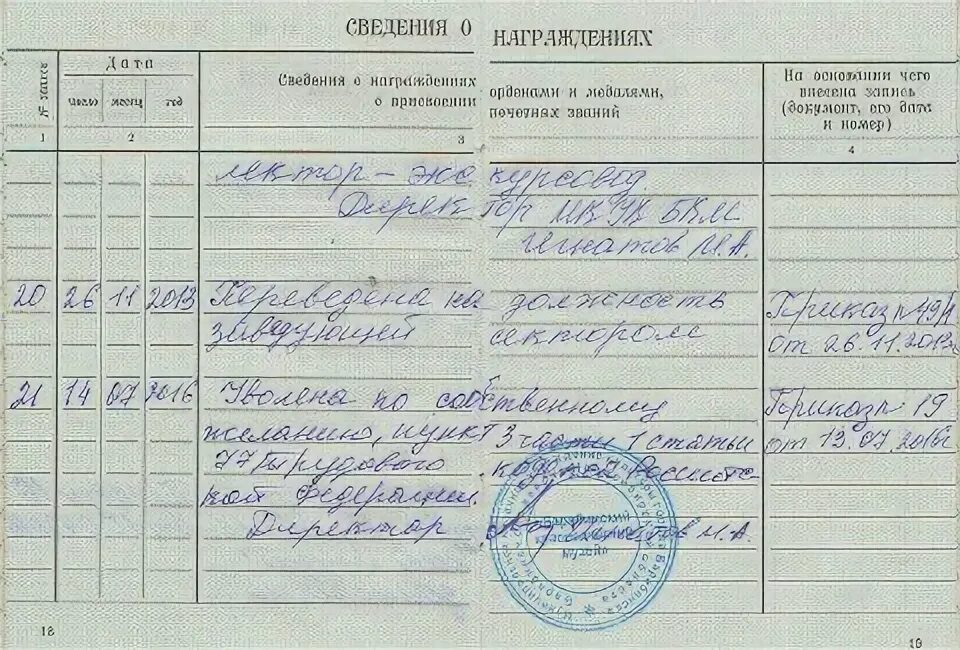 СВЕДЕНИЯ О НАГРАЖДЕНИЯХ
№ записи
Дата
число месяц год
Сведения о награждениях орденами и медалями,
о присвоении почетных званий
На основании чего
внесена запись
(документ, его дата
и номер)
1 2 3 4
лектор – экскурсовод
Директор МКУК БКМ
Игнатов М.А.
20 26 11 2013 Переведена на должность Приказ №49/1
заведующей сектором от 26.11.2013г
21 14 07 2016 Уволена по собственному Приказ № 19
желанию, пункт 3 части 1 статьи от 13.07.2016г
77 Трудового кодекса Российс-
кой Федерации.
Директор Игнатов М.А.
18 19